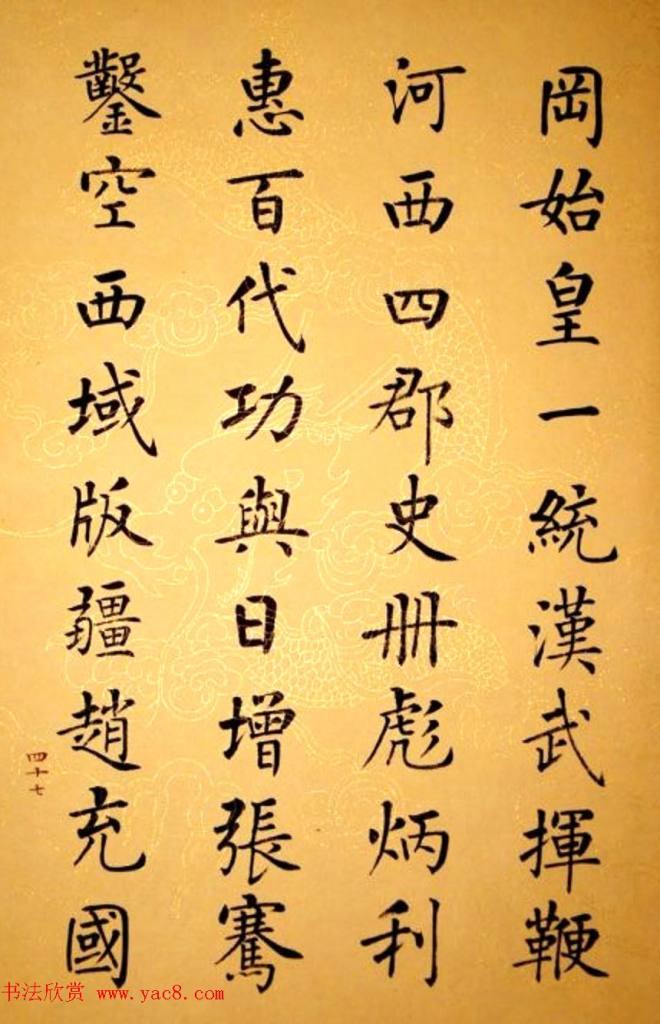 岡始皇一統漢武揮鞭
河西四郡史冊彪炳利
惠百代功與日增張騫
鑿空西域版疆趙充國
四十七
书法欣赏 www.yac8.com